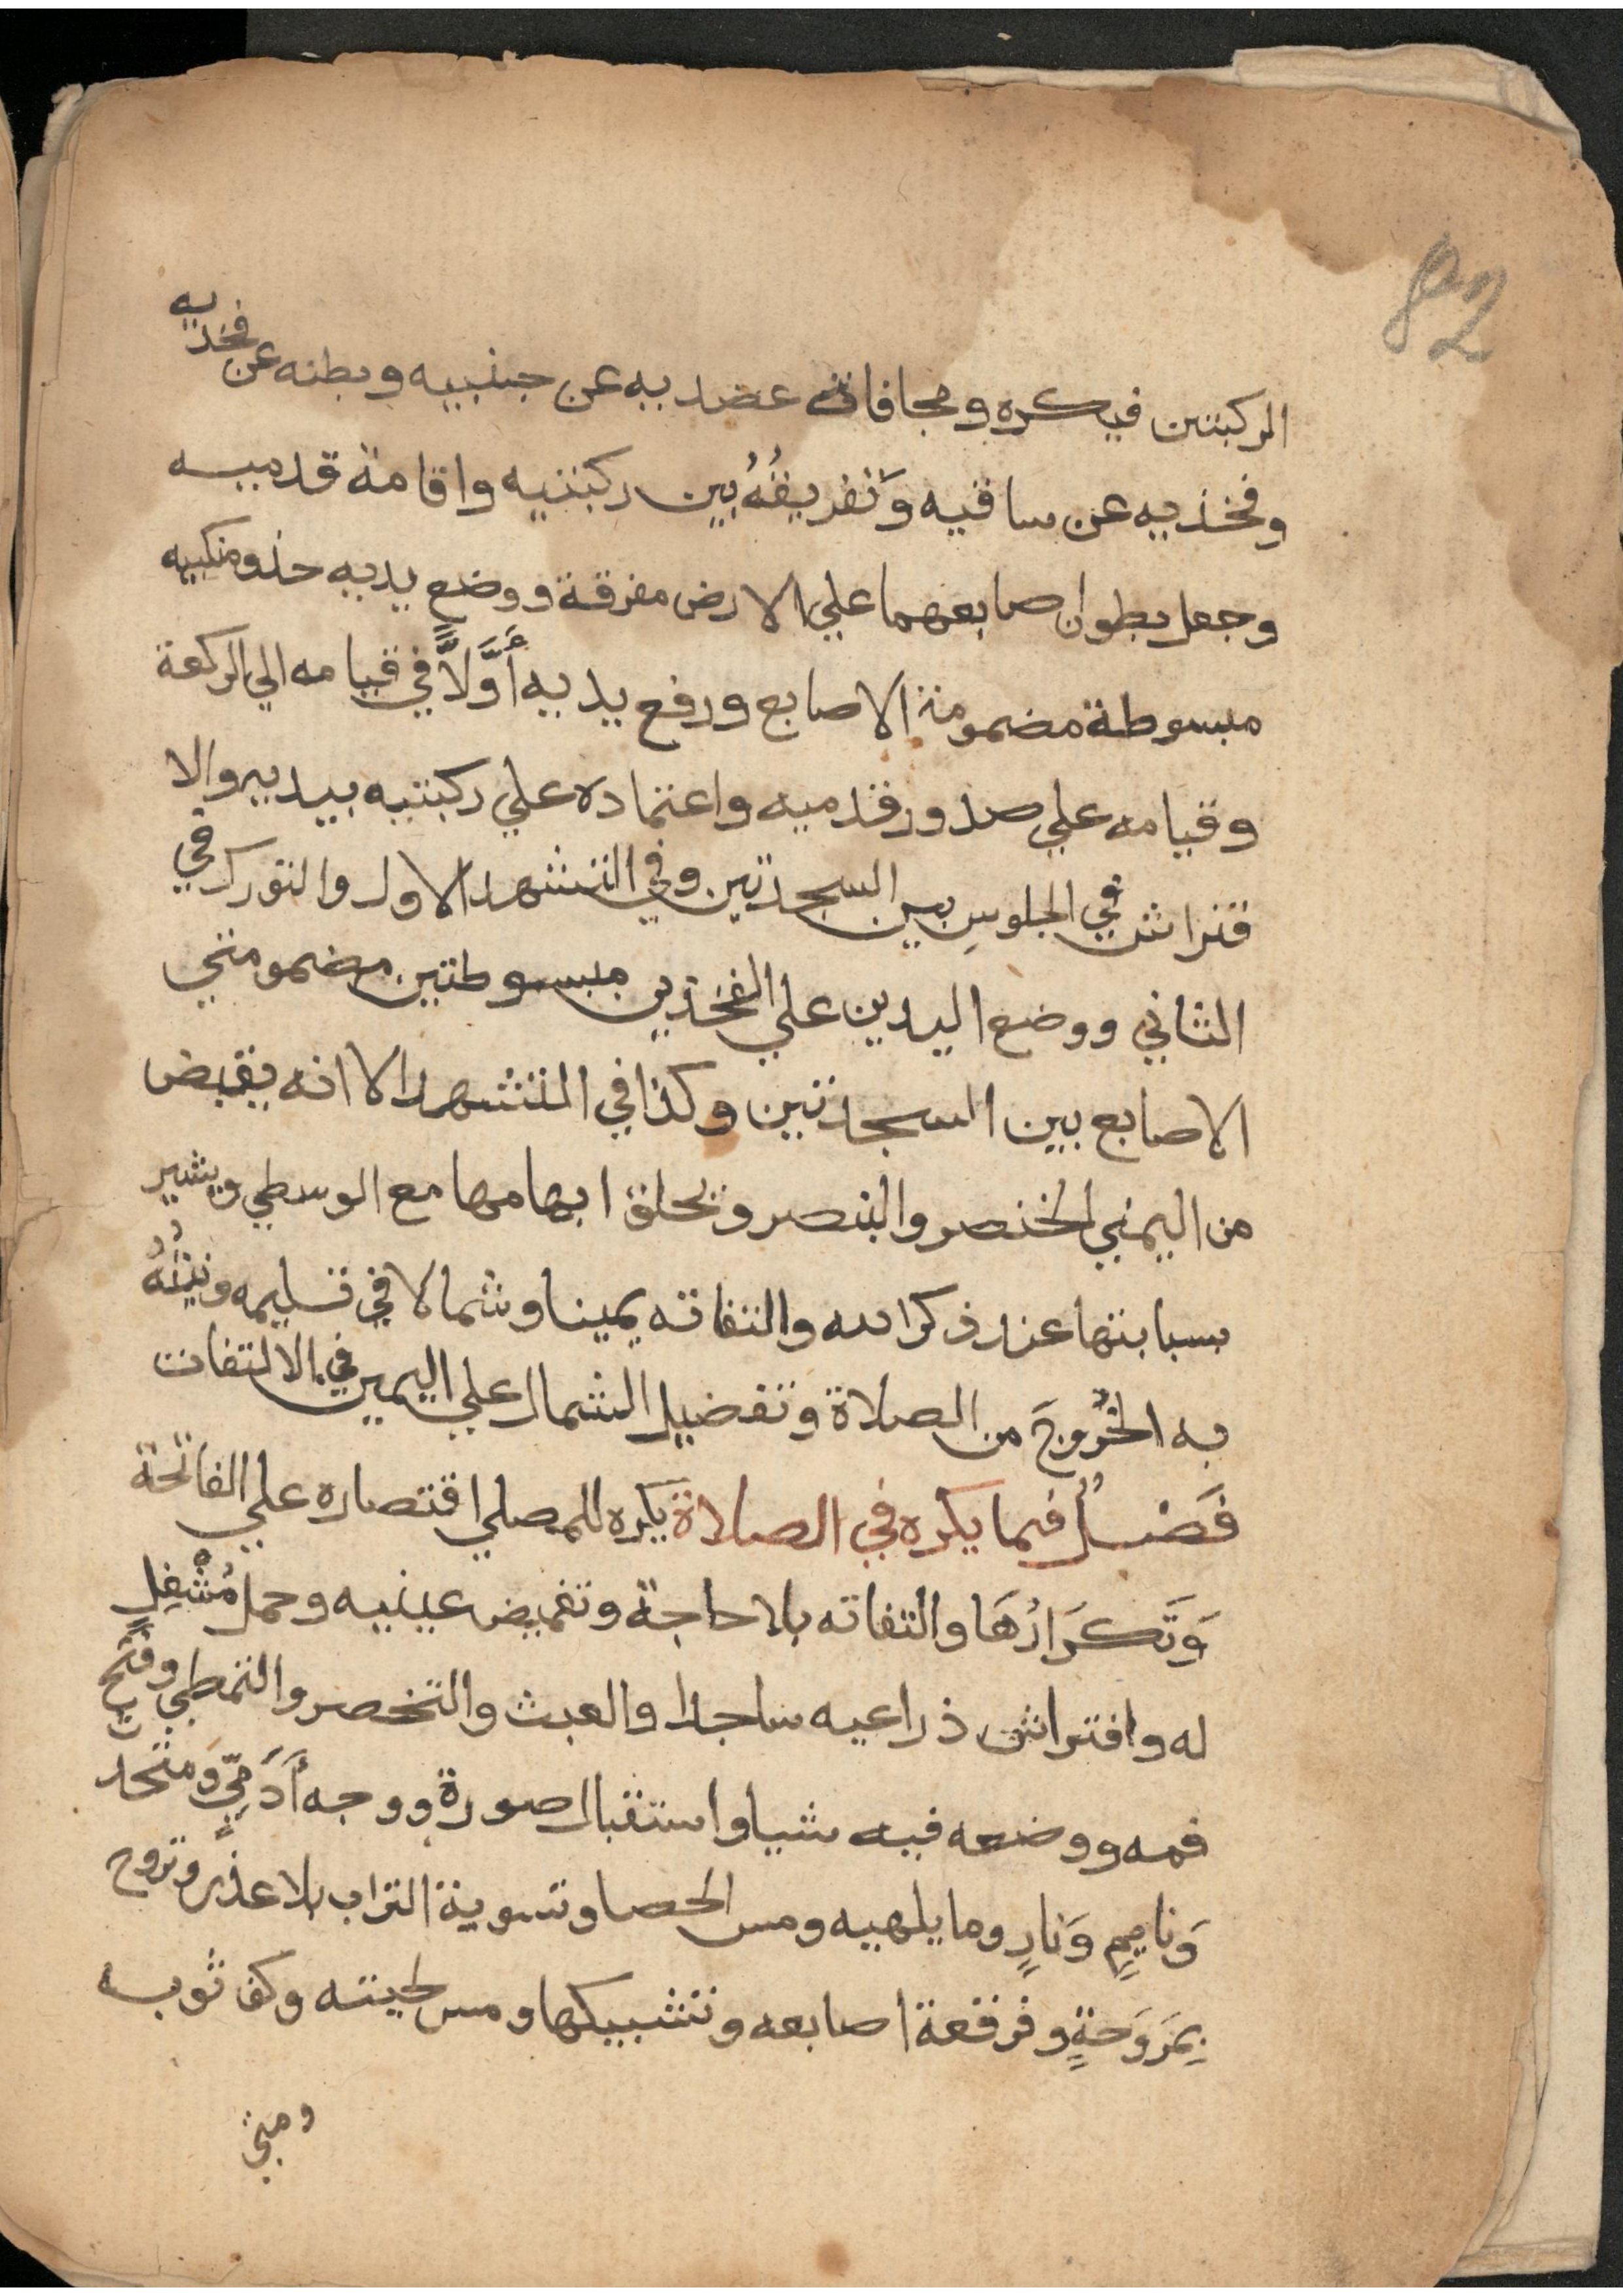 82
الركبتين فيكره ومجافاة عضديه عن جنبيه وبطنه عن فخذيه
وفخذيه عن ساقيه وَتفريقُهُ بين ركبتيه واقامة قدميه
وجعل بطون اصابعهما علي الارض مفرقة ووضع يديه حذو منكبيه
مبسوطة مضمومة الاصابع ورفع يديه أَوَّلاً في قيامه الي الركعة
وقيامه علي صدور قدميه واعتماده علي ركبتيه بيديه والا
فتراش في الجلوسِ بين السجدتين وفي التشهد الاول والتورك في
الثاني ووضع اليدين علي الفخذين مبسوطتين مضمومتي
الاصابع بين السجدتين وكذا في التشهد الا انه يقبض
من اليمني الخنصر والبنصر ويحلق ابهامها مع الوسطي ويشير
بسبابتها عند ذكر الله والتفاته يمينا وشمالا في تسليمه ونيتُهُ
به الخُرُوجَ من الصلاة وتفضيل الشمال علي اليمين في الالتفات
فَصْلٌ فيما يكره في الصلاة يكره للمصلي اقتصاره علي الفاتحة
وَتَكرَارُهَا والتفاته بلا حاجة وتغميض عينيه وحمل مُشْغِلٍ
له وافتراش ذراعيه ساجدا والعبث والتخصر والتمطي وفتح
فمه ووضعه فيه شيا واستقبال صورة ووجه أَدَمِيٍّ ومتحدث
وَنايمٍ وَنارٍ وما يلهيه ومس الحصا وتسوية التراب بلا عذر وتروح
بِمَروَحةٍ وفرقعة اصابعه وتشبيكها ومس لحيته وكف ثوبه
ومتي